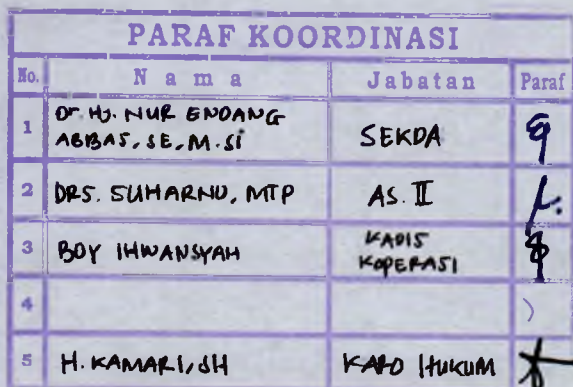 PARAF KOORDINASI
No. Nama Jabatan Paraf
1 Dr. Hj. NUR ENDANG
ABBAS, SE, M.Si SEKDA
2 DRS. SUHARNO, MTP AS. II
3 BOY IHWANSYAH KADIS
KOPERASI
4
5 H. KAMARI, SH KARO HUKUM